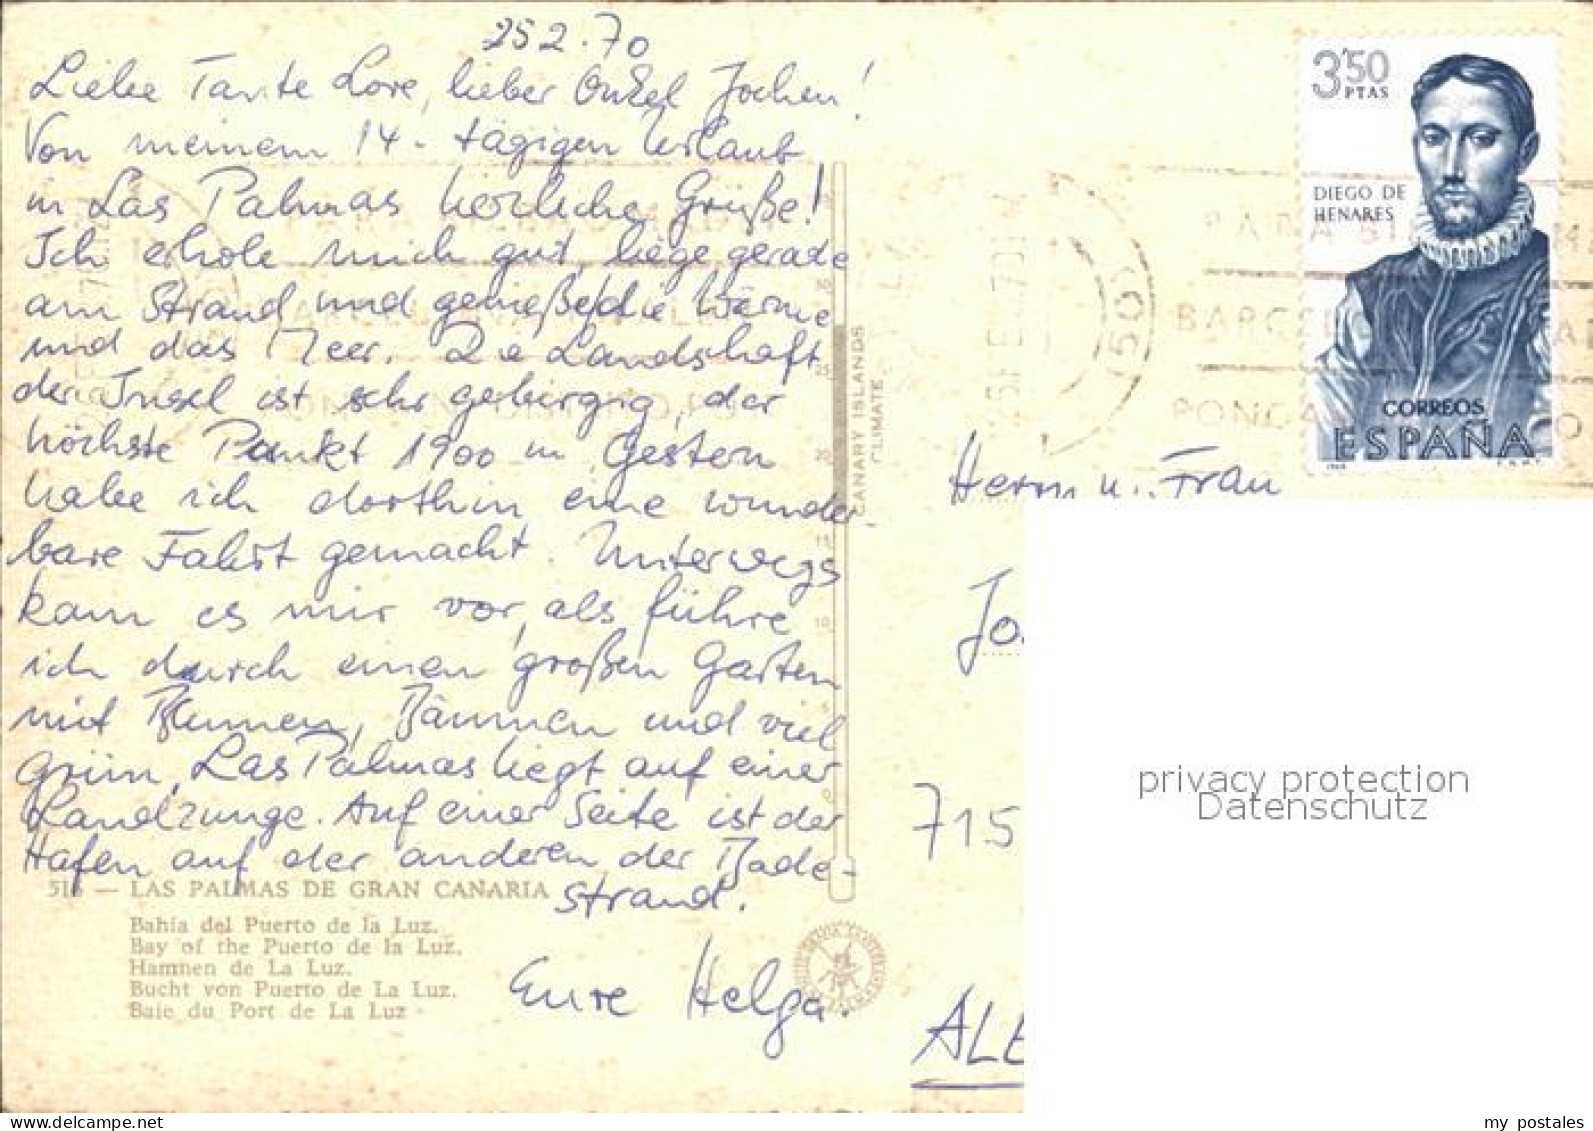 25 2. 70
Liebe Tante Lore, lieber Onkel Jochen!
Von meinem 14-tägigen Urlaub
in Las Palmas herzliche Grüße!
Ich erhole mich gut, liege gerade
am Strand und genieße die Wärme
und das Meer. Die Landschaft
der Insel ist sehr gebirgig, der
höchste Punkt 1900 m. Gestern
habe ich dorthin eine wunder
bare Fahrt gemacht. Unterwegs
kam es mir vor, als führe
ich durch einen großen Garten
mit Blumen, Bäumen und viel
Grün. Las Palmas liegt auf einer
Landzunge. Auf einer Seite ist der
Hafen auf der anderen der Bade-
strand.
Eure Helga.
LAS PALMAS DE GRAN CANARIA
Bahía del Puerto de la Luz.
Bay of the Puerto de la Luz.
Hamnen de La Luz.
Bucht von Puerto de La Luz.
Baie du Port de La Luz
CANARY ISLANDS
CLIMATE
3'50
PTAS
DIEGO DE
HENARES
CORREOS
ESPAÑA
Herrn u. Frau
Jo
715
ALE
privacy protection
Datenschutz
my postales